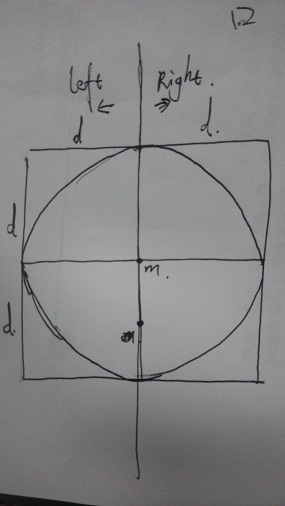 1.2
left Right.
← →
d d.
d
m.
d.
m